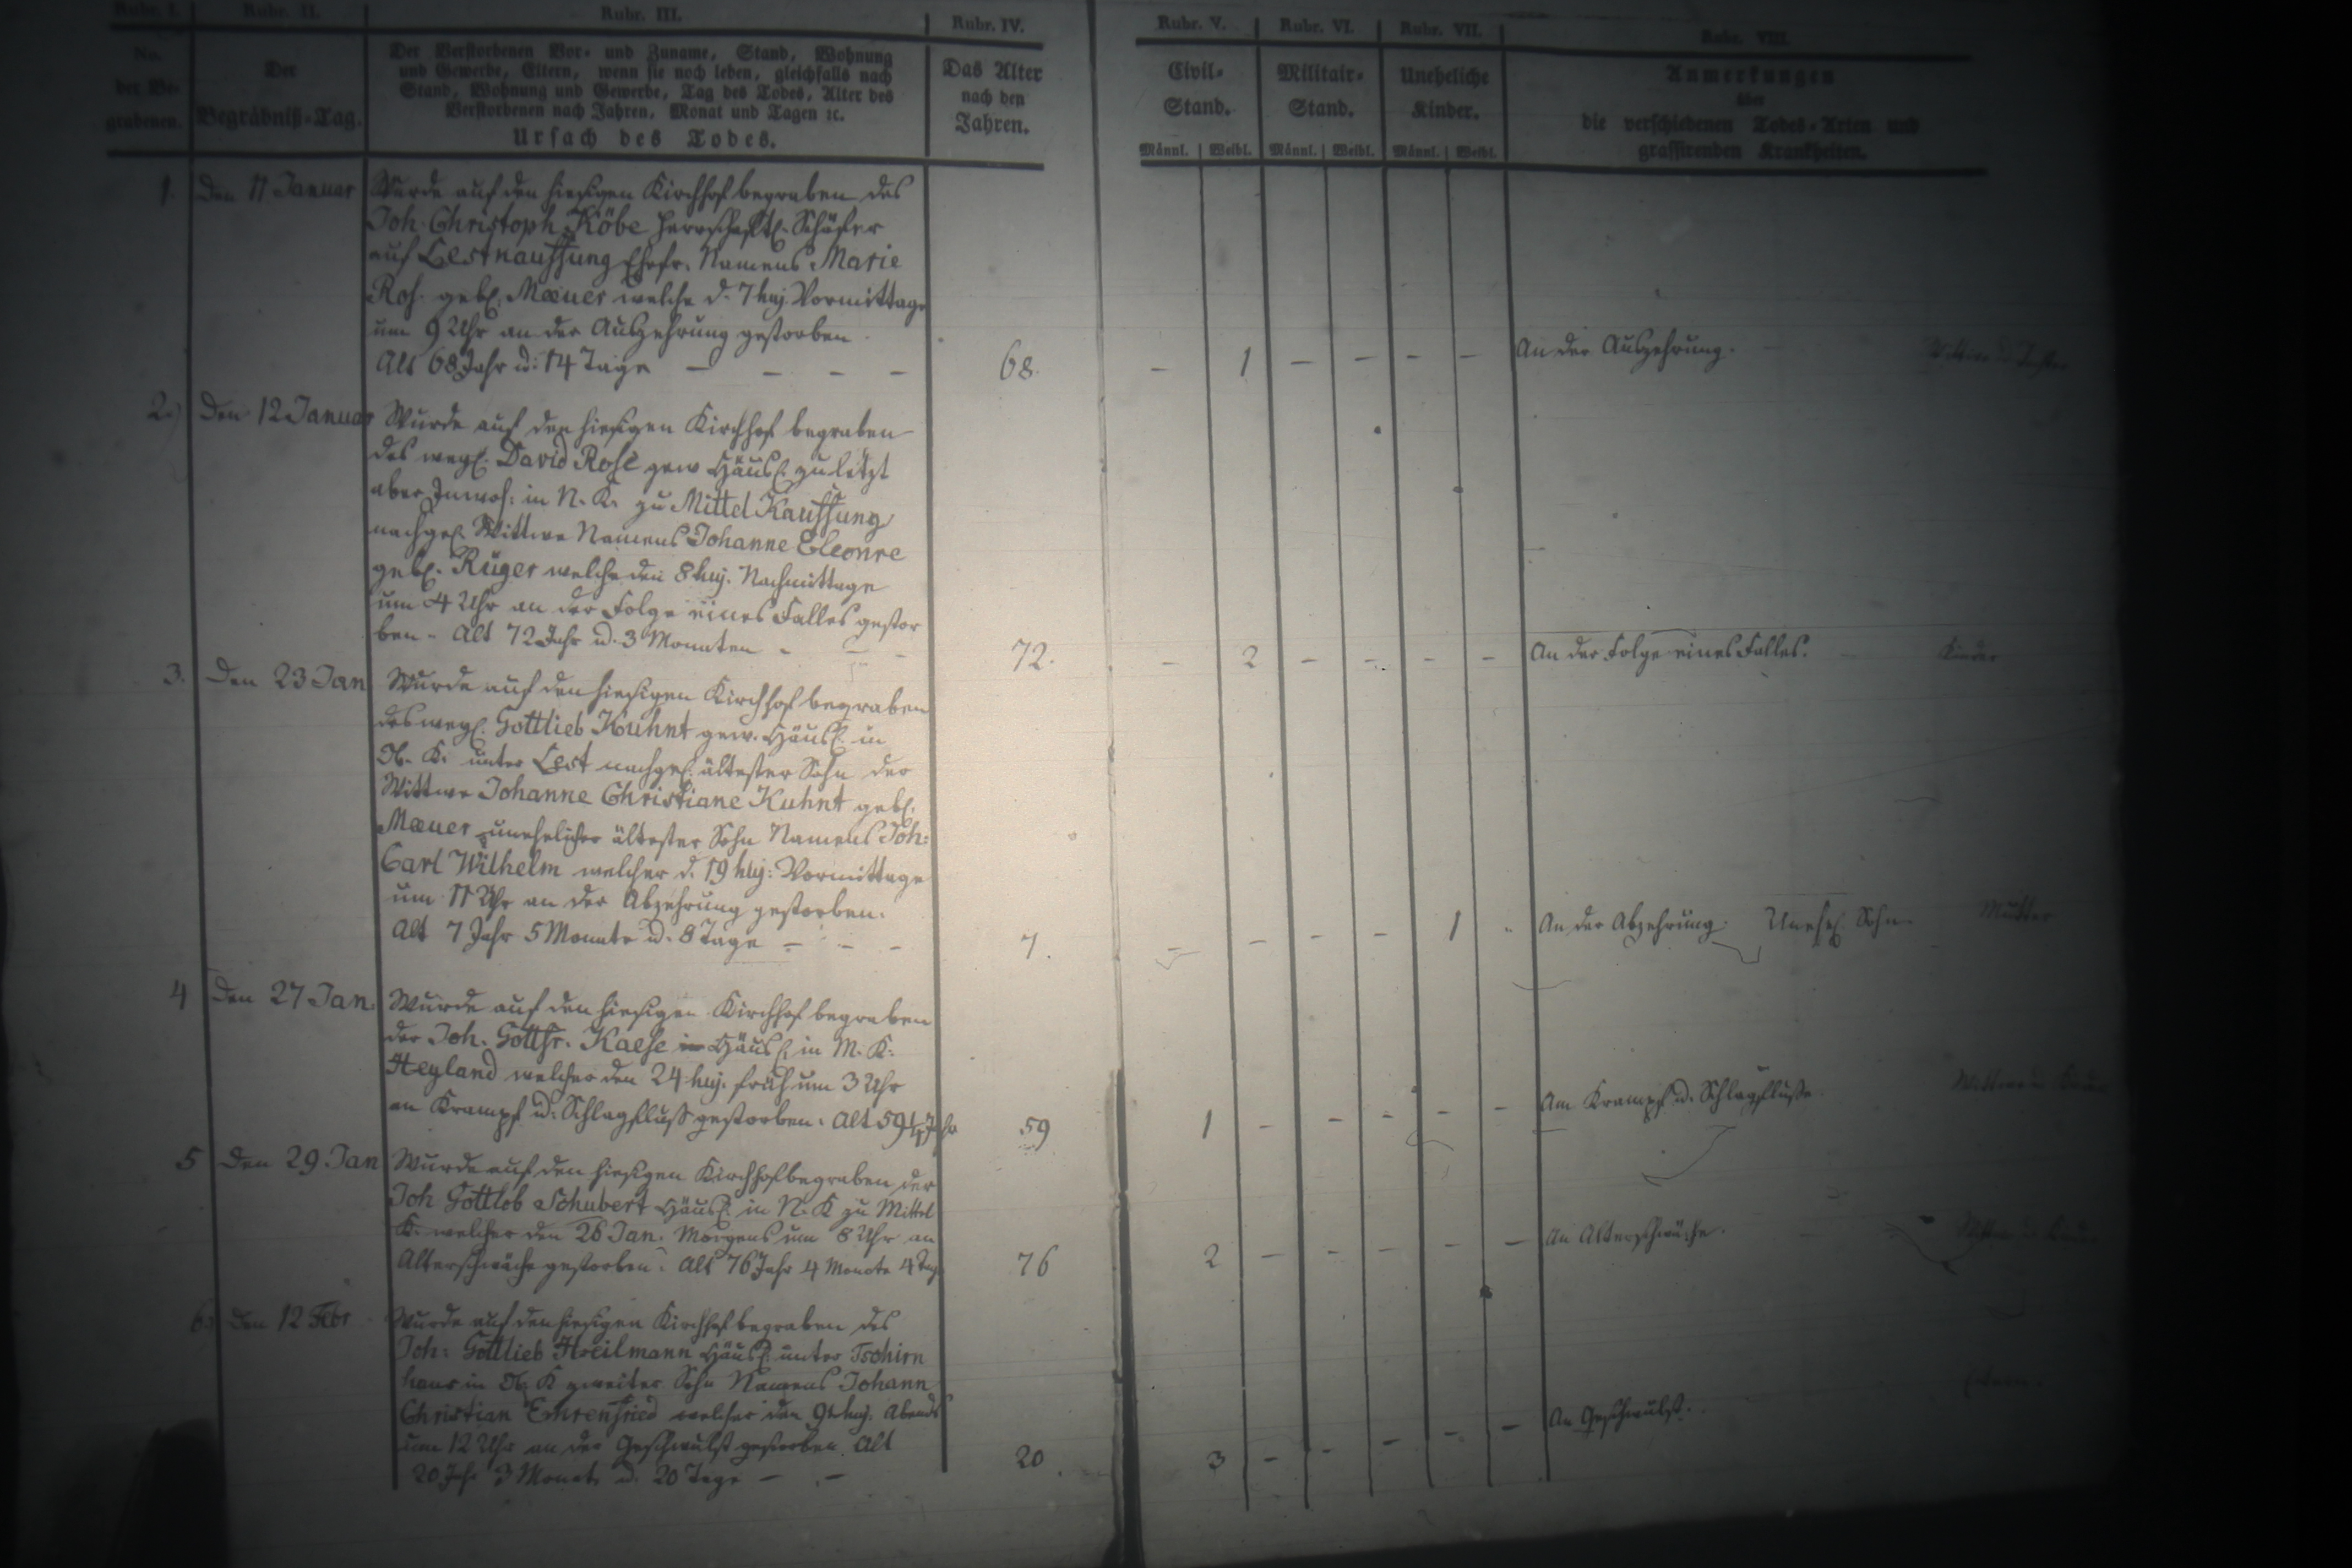 Rubr. I. Rubr. II. Rubr. III. Rubr. IV. Rubr. V. Rubr. VI. Rubr. VII. Rubr. VIII.
No. der Begrabenen.
Der Begräbniß-Tag.
Der Verstorbenen Vor- und Zuname, Stand, Wohnung
und Gewerbe, Eltern, wenn sie noch leben, gleichfalls nach
Stand, Wohnung und Gewerbe, Tag des Todes, Alter des
Verstorbenen nach Jahren, Monat und Tagen ꝛc.
Ursach des Todes.
Das Alter
nach den
Jahren.
Civil-
Stand.
Militair-
Stand.
Uneheliche
Kinder.
Anmerkungen
über
die verschiedenen Todes-Arten und
grassirenden Krankheiten.
Männl. Weibl. Männl. Weibl. Männl. Weibl.
1. Den 11 Januar Wurde auf den hiesigen Kirchhof begraben des
Joh. Christoph Köbe herrschaftl. Schäfer
auf Lestkauffung Ehefr. Namens Marie
Ros. geb. Mæuer welche d. 7 huj. Vormittage
um 9 Uhr an der Auszehrung gestorben.
Alt 68 Jahr u. 14 Tage — — — — 68. — 1 — — — — An der Auszehrung.
2.) Den 12 Januar Wurde auf den hiesigen Kirchhof begraben
des wegl. David Rose gew Häusl. zuletzt
aber Inwoh: in N. K. zu Mittel Kauffung
nachgel. Wittwe Namens Johanne Eleonre
gebl. Rüger welche den 8 huj. Nachmittage
um 4 Uhr an der Folge eines Falles gestor
ben - Alt 72 Jahr u. 3 Monaten - — - 72. — 2 — — — — An der Folge eines Falles. Kinder
3. Den 23 Jan Wurde auf den hiesigen Kirchhof begraben
des wegl. Gottlieb Kuhnt gew. Häusl. in
Ob. K. unter Lest nachgel. ältester Sohn der
Wittwe Johanne Christiane Kuhnt gebl.
Mæuer unehelicher ältester Sohn Namens Joh:
Carl Wilhelm welcher d. 19 huj: Vormittage
um 11 Uhr an der Abzehrung gestorben.
Alt 7 Jahr 5 Monate u. 8 Tage — — — 7. — — — — 1 - An der Abzehrung. Unehel. Sohn. Mutter
4 Den 27 Jan. Wurde auf den hiesigen Kirchhof begraben
der Joh. Gottfr. Kaese Häusl. in M. K.
Heyland welcher den 24 huj. früh um 3 Uhr
an Krampf u. Schlagfluss gestorben. Alt 59 Jahr 59 1 — — — — — Am Krampf u. Schlagflusse.
5 Den 29 Jan Wurde auf den hiesigen Kirchhof begraben der
Joh Gottlob Schubert Häusl. in N. K zu Mittel
K. welcher den 26 Jan. Morgens um 8 Uhr an
Alterschwäche gestorben. Alt 76 Jahr 4 Monate 4 Tag 76 2 — — — — — An Alterschwäche.
6. Den 12 Febr Wurde auf den hiesigen Kirchhof begraben des
Joh: Gottlieb Heilmann Häusl. unter Tschirn
haus in Ob. K zweiter Sohn Namens Johann
Christian Ehrenfried welcher den 9t huj. Abends
um 12 Uhr an der Geschwulst gestorben. Alt
20 Jahr 3 Monate u. 20 Tage — — 20. 3 — — — — — An Geschwulst.